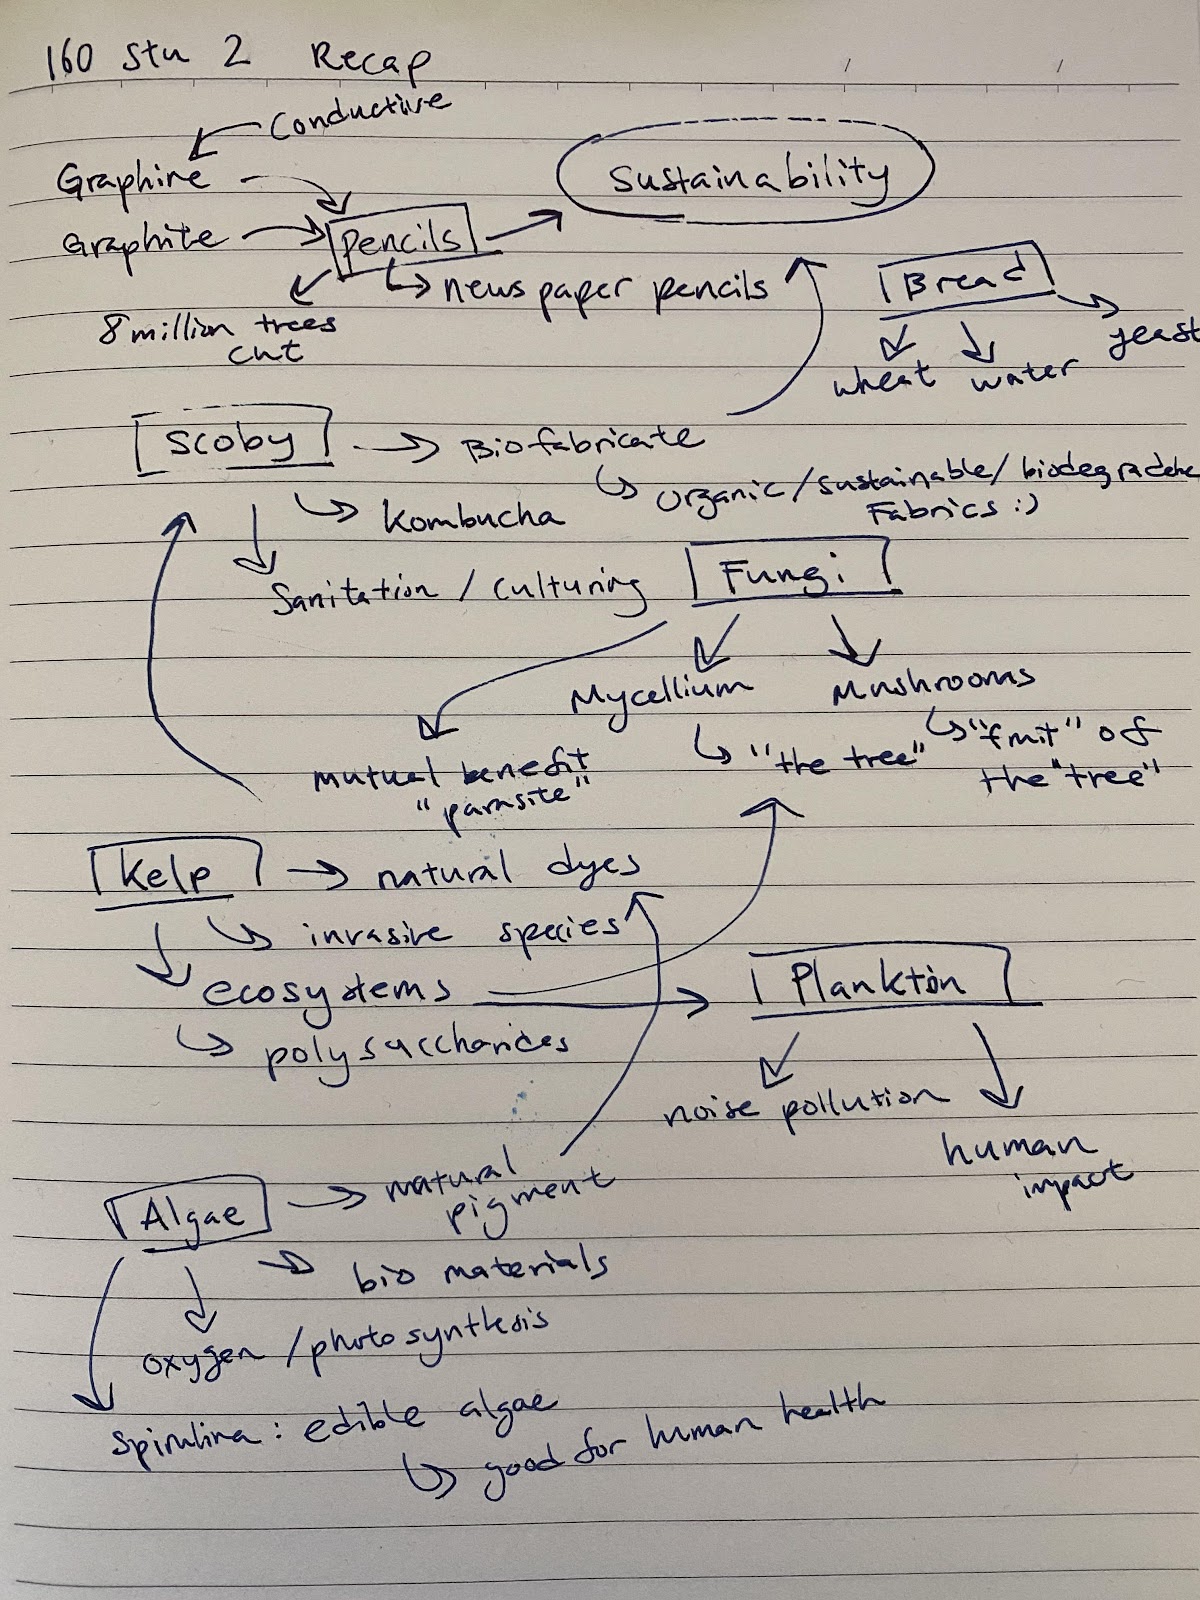 160 Stu 2 Recap
Conductive
Graphine
Sustainability
Graphite
Pencils
newspaper pencils
Bread
8 million trees
cut
yeast
wheat water
Scoby
Biofabricate
organic/sustainable/biodegradable
Fabrics :)
Kombucha
Sanitation / culturing
Fungi
Mycellium
Mushrooms
"the tree"
"fruit" of
the "tree"
mutual benefit
"parasite"
Kelp
natural dyes
invasive species
ecosystems
polysaccharides
Plankton
noise pollution
human
impact
Algae
natural
pigment
bio materials
oxygen / photosynthesis
Spirulina : edible algae
good for human health